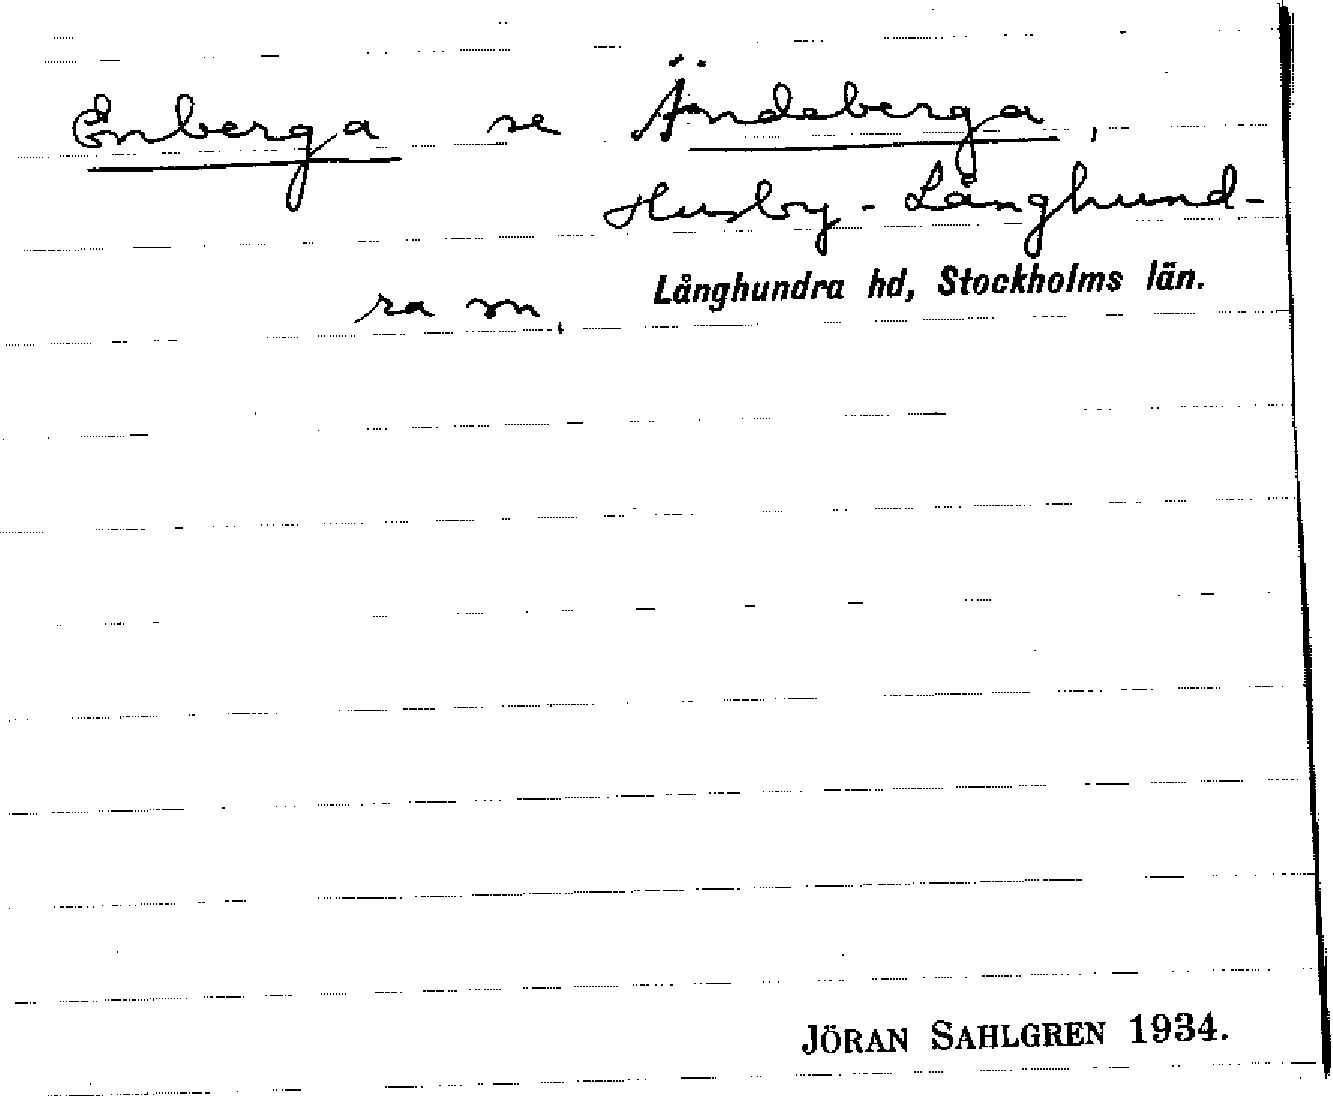 Enberga se Ändeberga,
Husby-Långhund-
ra sn,
Långhundra hd, Stockholms län.
JÖRAN SAHLGREN 1934.